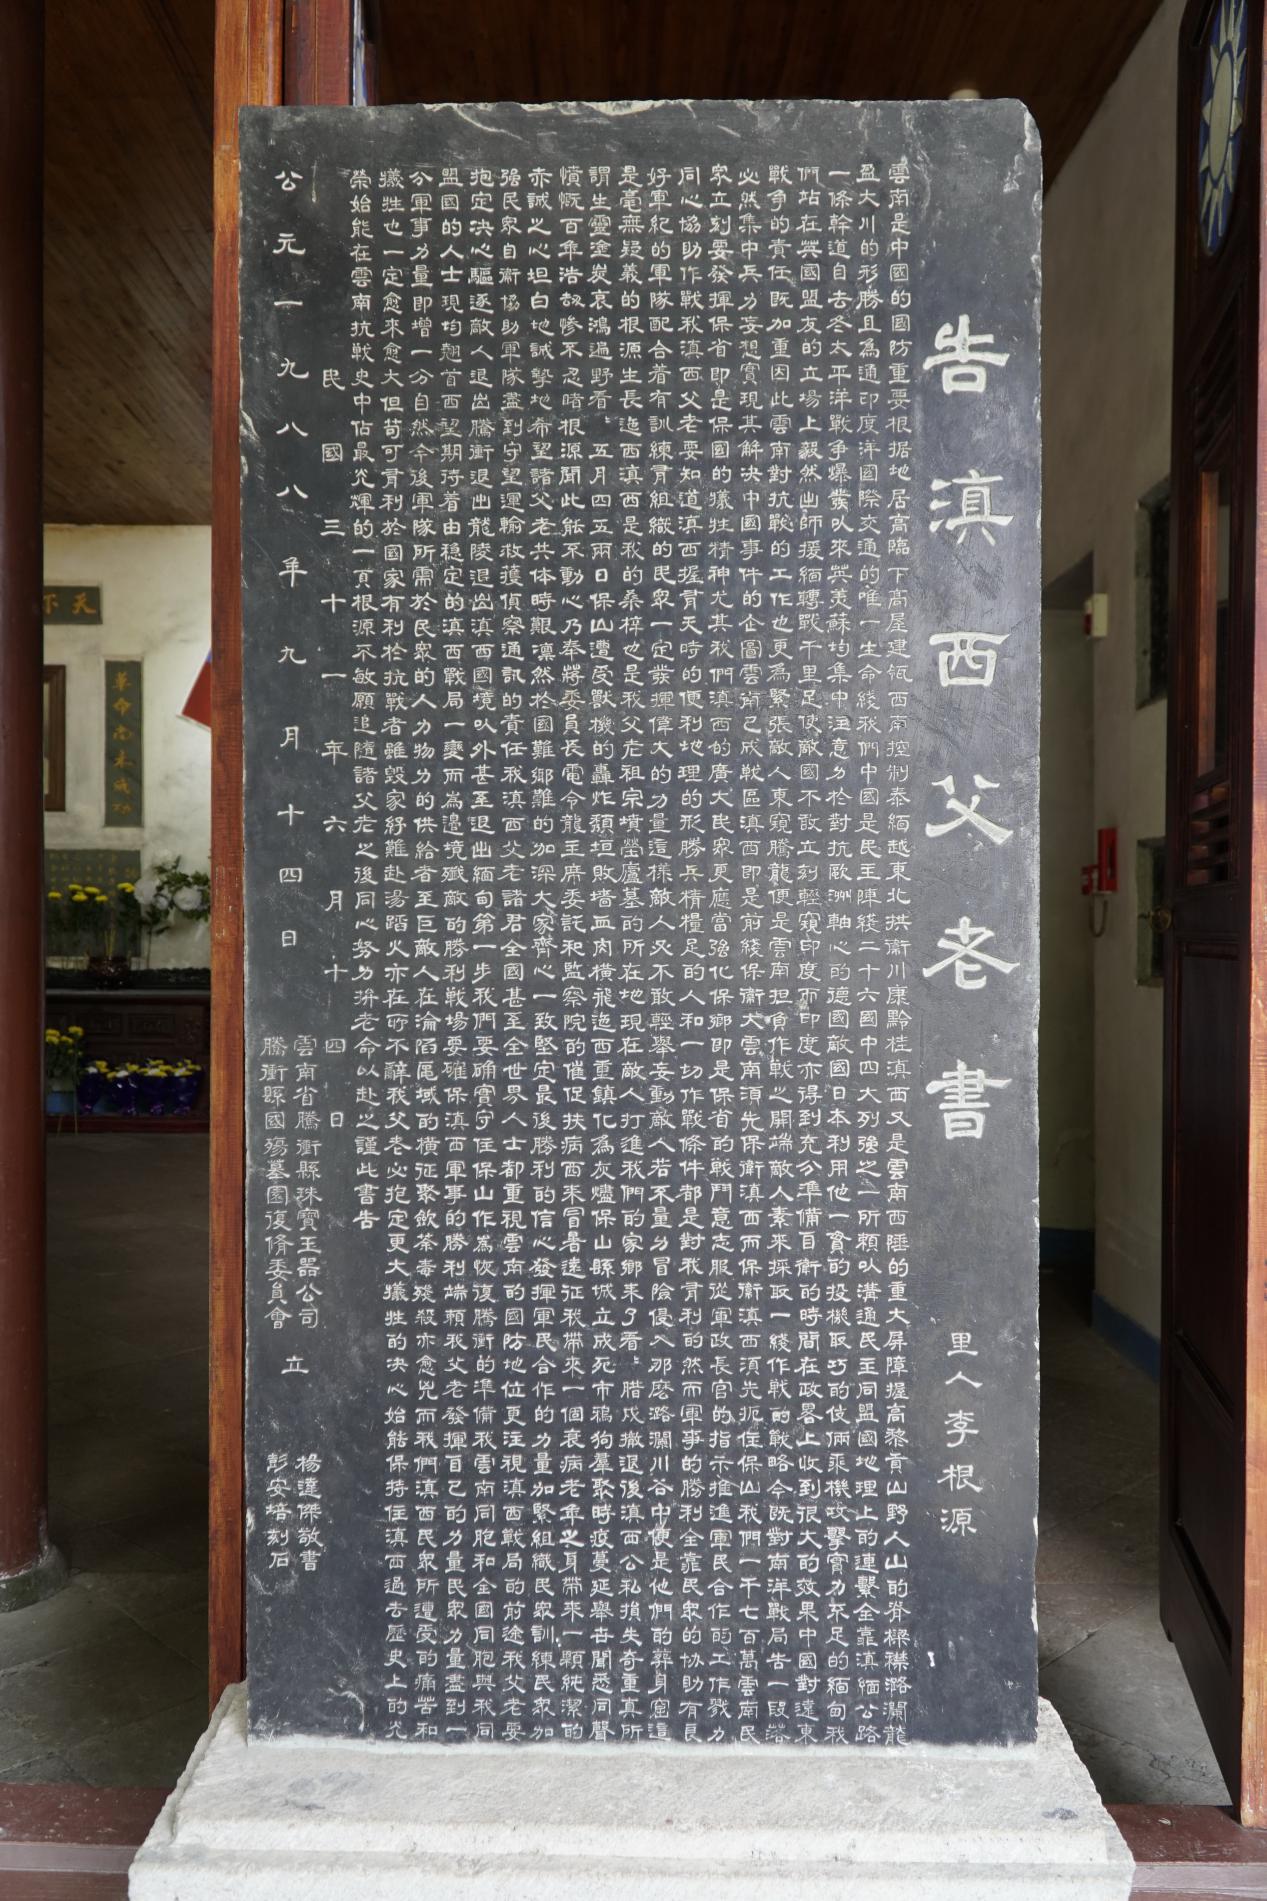 告滇西父老書
里人李根源
雲南是中國的國防重要根据地居高臨下高屋建瓴西南控制泰緬越東北拱衛川康黔桂滇西又是雲南西陲的重大屏障握高黎貢山野人山的脊樑襟潞瀾龍
盈大川的形勝且為通印度洋國際交通的唯一生命綫我們中國是民主陣綫二十六國中四大列強之一所賴以溝通民主同盟國地理上的連繫全靠滇緬公路
一條幹道自去冬太平洋戰爭爆發以來英美蘇均集中注意力於對抗歐洲軸心的德國敵國日本利用他一貫的投機取巧的伎倆乘機攻擊實力不足的緬甸我
們站在英國盟友的立場上毅然出師援緬轉戰千里足使敵國不敢立刻輕窺印度而印度亦得到充分準備自衛的時間在政畧上收到很大的效果中國對遠東
戰争的責任既加重因此雲南對抗戰的工作也更為緊張敵人東窺騰龍便是雲南担負作戰之開端敵人素來採取一綫作戰的戰略今既對南洋戰局告一段落
必然集中兵力妄想實現其解決中國事件的企圖雲南已成戰區滇西即是前綫保衛大雲南須先保衛滇西而保衛滇西須先扼住保山我們一千七百萬雲南民
眾立刻要發揮保省即是保國的犧牲精神尤其我們滇西的廣大民眾更應當強化保鄉即是保省的戰鬥意志服從軍政長官的指示推進軍民合作的工作戮力
同心協助作戰我滇西父老要知道滇西握有天時的便利地理的形勝兵精糧足的人和一切作戰條件都是對我有利的然而軍事的勝利全靠民眾的協助有良
好軍紀的軍隊配合着有訓練有組織的民眾一定發揮偉大的力量這樣敵人必不敢輕舉妄動敵人若不量力冒險侵入那麼潞瀾川谷中便是他們的葬身窟這
是毫無疑義的根源生長迤西滇西是我的桑梓也是我父老祖宗墳塋廬墓的所在地現在敵人打進我們的家鄉來了看﹑腊戌撤退後滇西公私損失奇重真所
謂生靈塗炭哀鴻遍野看﹑五月四五兩日保山遭受獸機的轟炸頹垣敗墻血肉橫飛迤西重鎮化為灰燼保山縣城立成死市鴉狗羣聚時疫蔓延舉世聞悉同聲
憤慨百年浩劫慘不忍睹根源聞此能不動心乃奉蔣委員長電令龍主席委託和監察院的催促扶病西來冒暑遠征我帶來一個衰病老年之身帶來一顆純潔的
赤誠之心坦白地誠摯地希望諸父老共体時艱凛然於國難鄉難的加深大家齊心一致堅定最後勝利的信心發揮軍民合作的力量加緊組織民眾訓練民眾加
强民眾自衛協助軍隊盡到守望運輸救護偵察通訊的責任我滇西父老諸君全國甚至全世界人士都重視雲南的國防地位更注視滇西戰局的前途我父老要
抱定决心驅逐敵人退出騰衝退出龍陵退出滇西國境以外甚至退出緬甸第一步我們要确實守住保山作為恢復騰衝的準備我雲南同胞和全國同胞與我同
盟國的人士現均翹首西望期待着由稳定的滇西戰局一變而為邊境殲敵的勝利戰場要確保滇西軍事的勝利端賴我父老發揮自己的力量民眾力量盡到一
分軍事力量即增一分自然今後軍隊所需於民眾的人力物力的供給者至巨敵人在淪陷區域的橫征聚斂荼毒殘殺亦愈兇而我們滇西民眾所遭受的痛苦和
犧牲也一定愈來愈大但苟可有利於國家有利於抗戰者雖毀家紓難赴湯蹈火亦在所不辭我父老必抱定更大犧牲的决心始能保持住滇西過去歷史上的光
榮始能在雲南抗戰史中佔最光輝的一頁根源不敏願追隨諸父老之後同心努力拚老命以赴之謹此書告
民國三十一年六月十四日
公元一九八八年九月十四日
雲南省騰衝縣珠寶玉器公司
騰衝縣國殤墓園復修委員會
立
楊達傑敬書
彭安培刻石
革命尚未成功